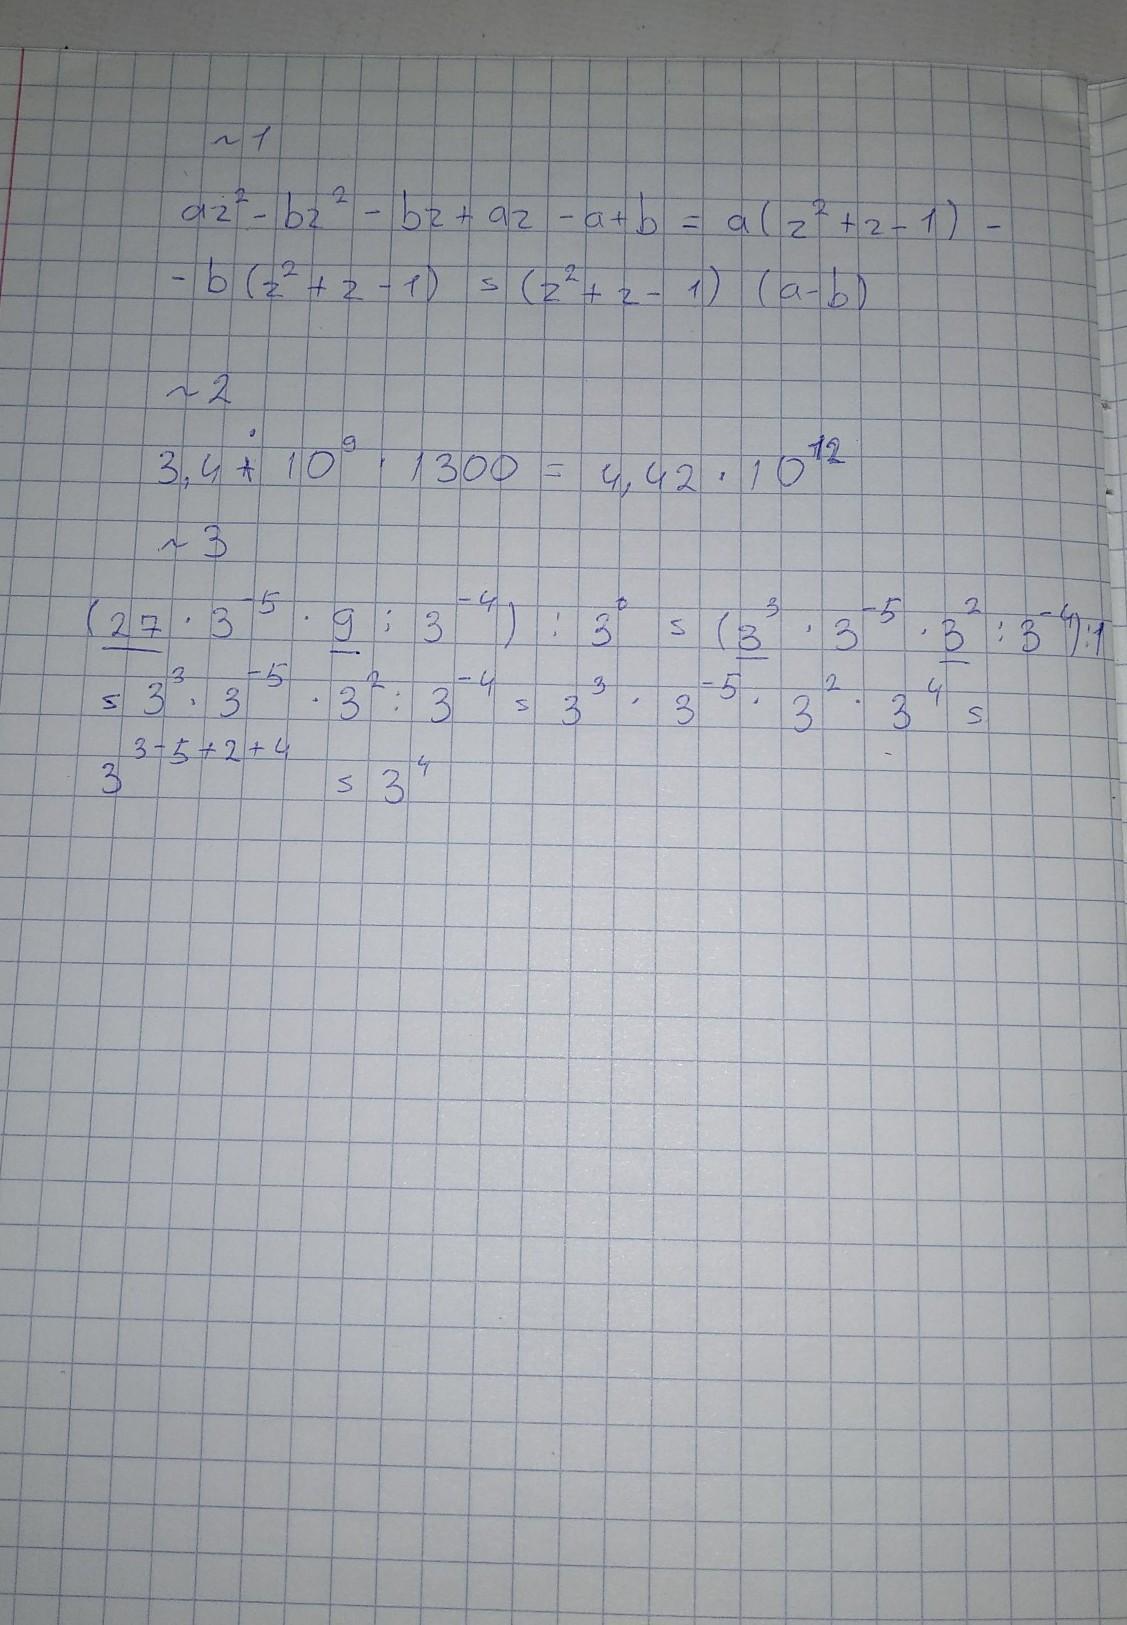 ~1
az² - bz² - bz + az - a + b = a(z² + z - 1) -
- b(z² + z - 1) = (z² + z - 1) (a - b)
~2
3,4 · 10⁹ · 1300 = 4,42 · 10¹²
~3
(27 · 3⁻⁵ · 9 : 3⁻⁴) : 3⁰ = (3³ · 3⁻⁵ · 3² : 3⁻⁴) : 1
= 3³ · 3⁻⁵ · 3² : 3⁻⁴ = 3³ · 3⁻⁵ · 3² · 3⁴ =
3³⁻⁵⁺²⁺⁴ = 3⁴